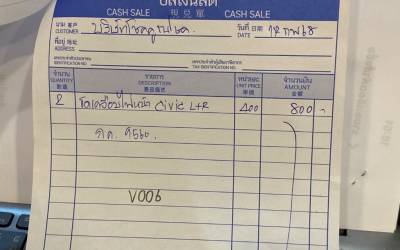 บิลเงินสด
CASH SALE 現兌單 CASH SALE
นาม ลูกค้า CUSTOMER บริษัทโชคคูณโชค วันที่ 日期 DATE 12 กพ 68
ที่อยู่ 地址 ADDRESS
เลขประจำตัวผู้เสียภาษี TAX IDENTIFICATION NO.
เลขประจำตัวผู้เสียภาษีอากร TAX IDENTIFICATION NO.
จำนวน QUANTITY 數量 รายการ DESCRIPTION 貨品備式 หน่วยละ UNIT PRICE 單價 จำนวนเงิน AMOUNT 金額
2 ขัดเคลือบไฟหน้า Civic L+R 400 800 -
กค 9560
V006